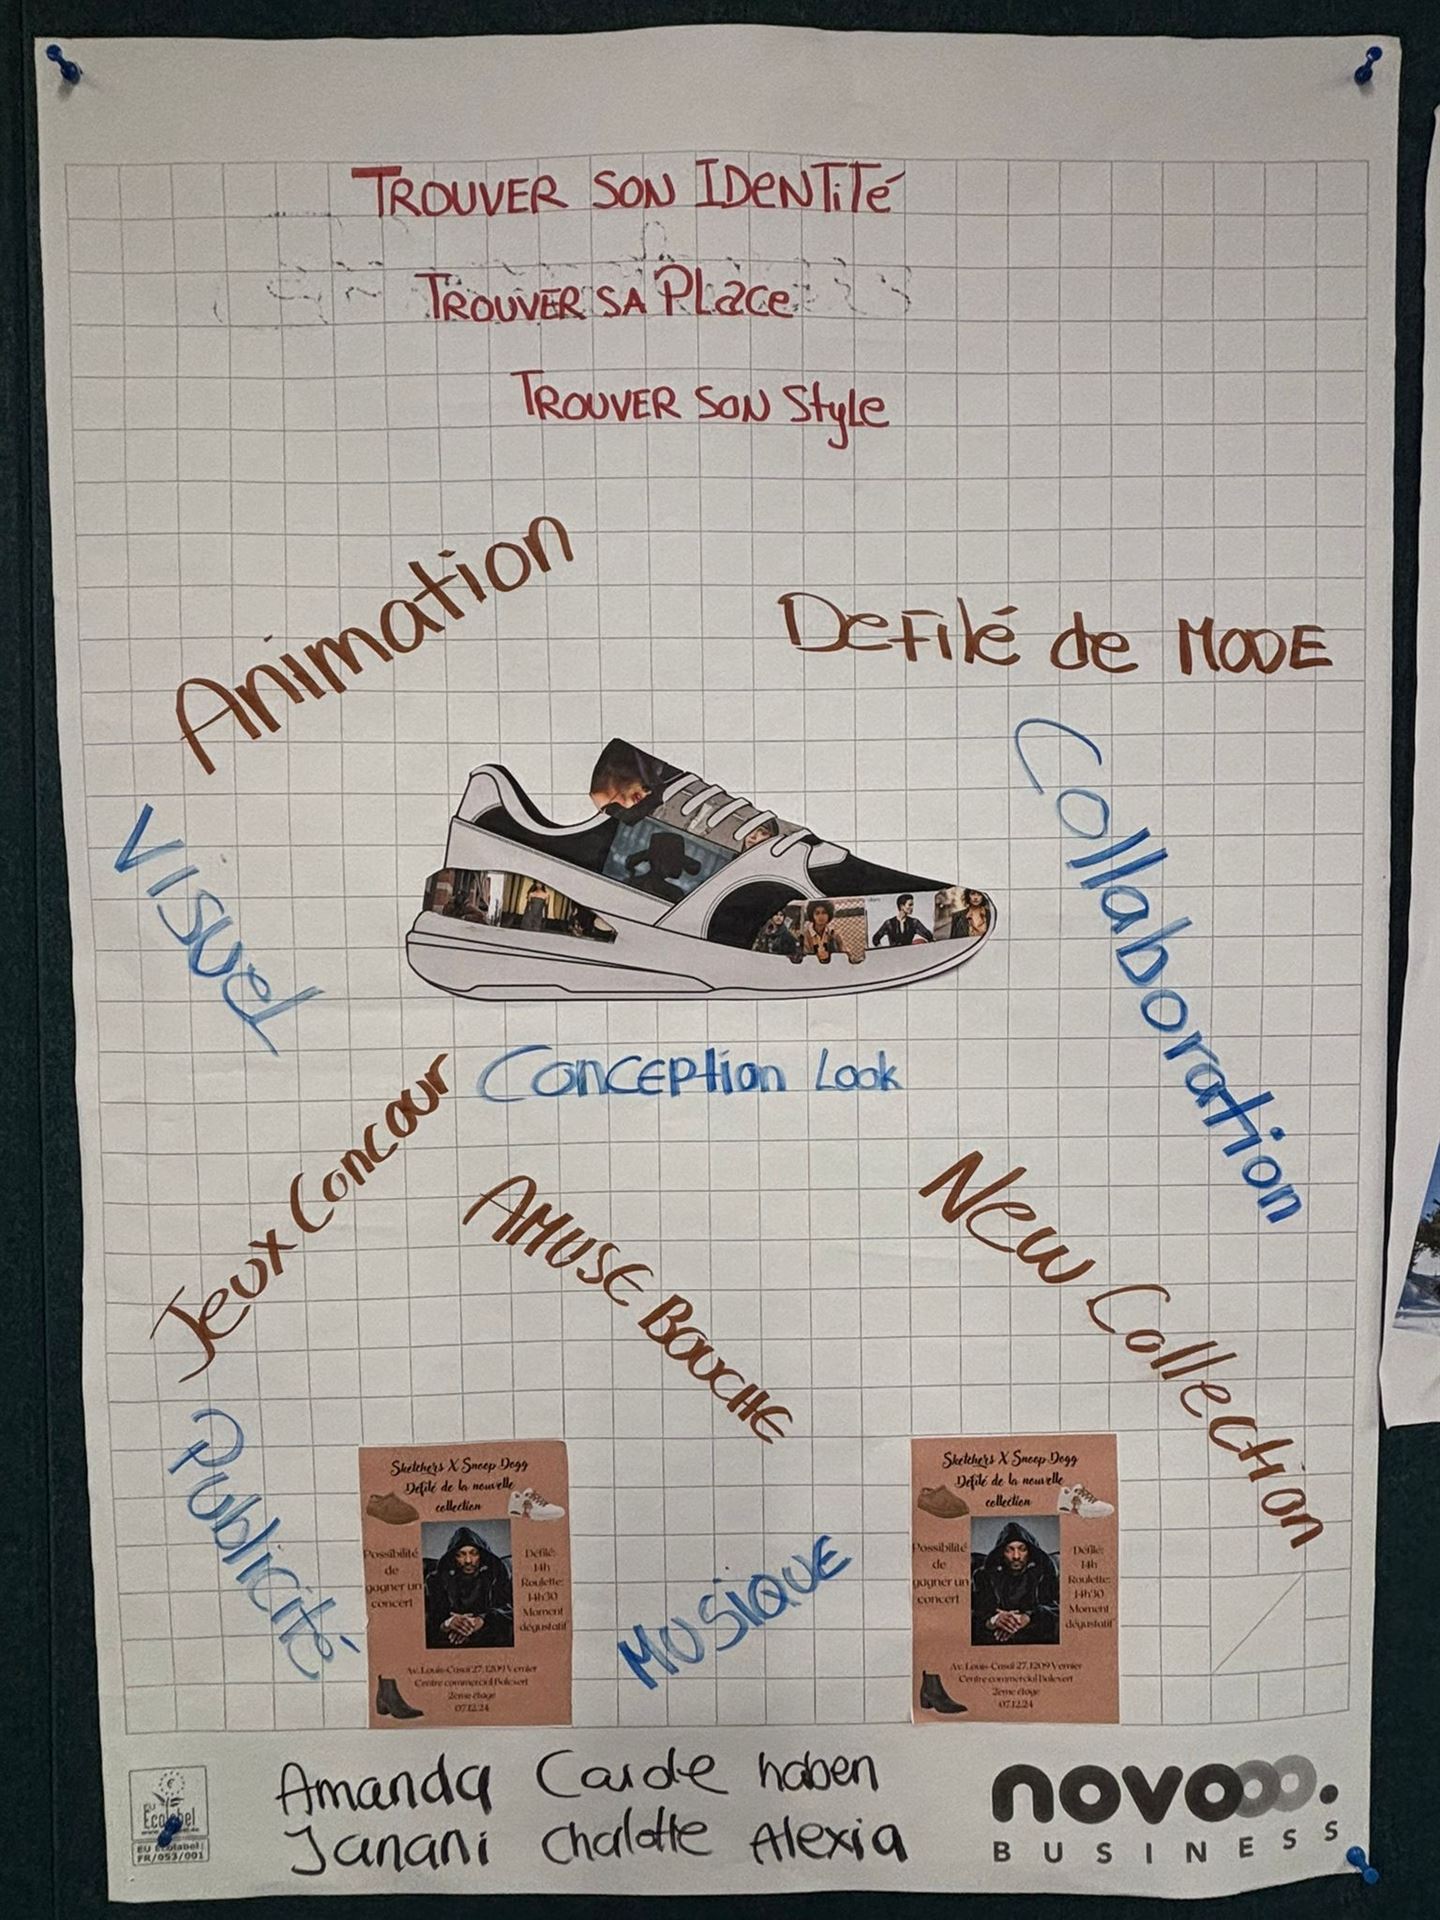 TROUVER SON IDeNTiTé
TROUVER SA PLace
TROUVER SON Style
Animation
DeFilé de MODE
Collaboration
VISUel
Conception Look
Jeux Concour
AMUSE BOUCHE
New Collection
Publicité
MUSiQUE
Sketchers X Snoop Dogg
Défilé de la nouvelle
collection
Possibilité
de
gagner un
concert
Défilé:
14h
Roulette:
14h30
Moment
dégustatif
Av. Louis-Casaï 27, 1209 Vernier
Centre commercial Balexert
2ème étage
07.12.24
Sketchers X Snoop Dogg
Défilé de la nouvelle
collection
Possibilité
de
gagner un
concert
Défilé:
14h
Roulette:
14h30
Moment
dégustatif
Av. Louis-Casaï 27, 1209 Vernier
Centre commercial Balexert
2ème étage
07.12.24
Amanda haben
Janani Alexia
novo
BUSINESS
EU
Ecolabel
EU Ecolabel
FR/053/001